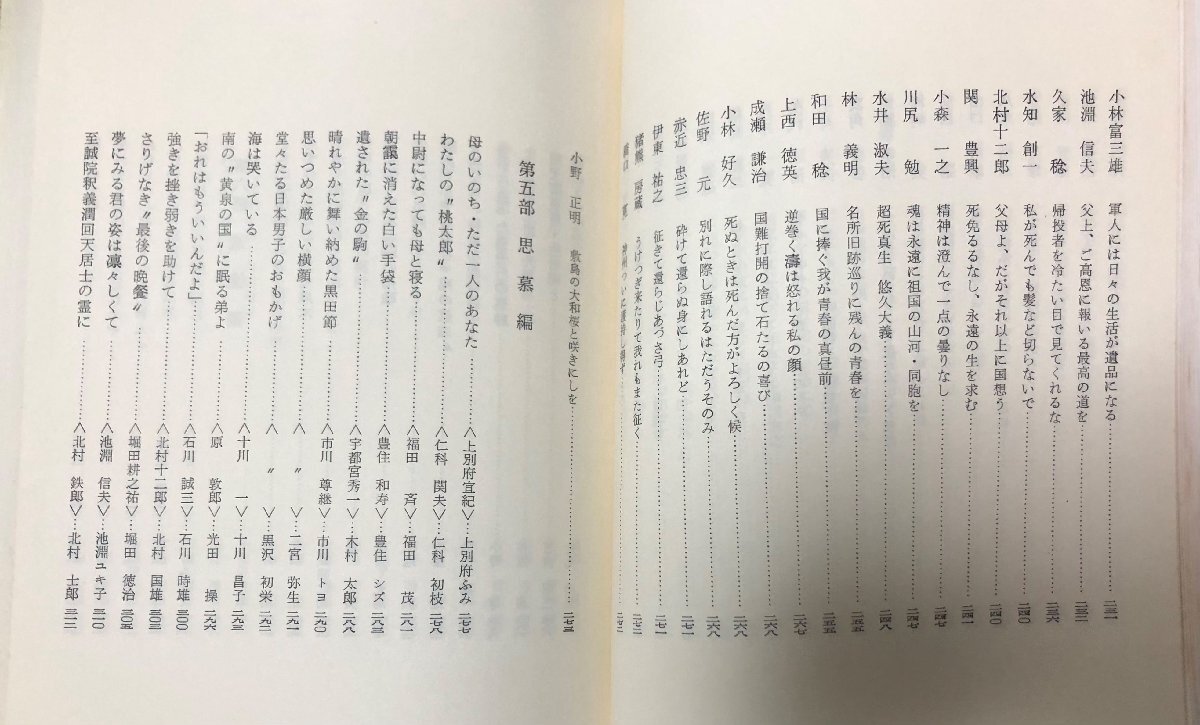 小林富三雄 軍人には日々の生活が遺品になる…………二三一
池淵 信夫 父上、ご高恩に報いる最高の道を…………二三二
久家 稔 帰投者を冷たい目で見てくれるな…………二三六
水知 創一 私が死んでも髪など切らないで…………二四〇
北村十二郎 父母よ、だがそれ以上に国想う…………二四〇
関 豊興 死免るるなし、永遠の生を求む…………二四一
小森 一之 精神は澄んで一点の曇りなし…………二四七
川尻 勉 魂は永遠に祖国の山河・同胞を…………二四七
水井 淑夫 超死真生 悠久大義…………二四八
林 義明 名所旧跡巡りに残んの青春を…………二五五
和田 稔 国に捧ぐ我が青春の真昼前…………二五五
上西 徳英 逆巻く濤は怒れる私の顔…………二六七
成瀬 謙治 国難打開の捨て石たるの喜び…………二六八
小林 好久 死ぬときは死んだ方がよろしく候…………二六八
佐野 元 別れに際し語れるはただうそのみ…………二六八
赤近 忠三 砕けて還らぬ身にしあれど…………二七一
伊東 祐之 征きて還らじあづさ弓…………二七一
猪熊 房蔵 うけつぎ来たりて我れもまた征く…………二七二
小野 正明 敷島の大和桜と咲きにしを…………二七三
第五部 思慕編
母のいのち・ただ一人のあなた…………〈上別府宜紀〉…上別府ふみ 二七七
わたしの〝桃太郎〟…………〈仁科 関夫〉…仁科 初枝 二七八
中尉になっても母と寝る…………〈福田 斉〉…福田 茂 二八一
朝靄に消えた白い手袋…………〈豊住 和寿〉…豊住 シズ 二八三
遺された〝金の駒〟…………〈宇都宮秀一〉…木村 太郎 二八八
晴れやかに舞い納めた黒田節…………〈市川 尊継〉…市川 トヨ 二九〇
思いつめた厳しい横顔…………〈 〃 〉…二宮 弥生 二九一
堂々たる日本男子のおもかげ…………〈 〃 〉…黒沢 初栄 二九二
海は哭いている…………〈十川 一〉…十川 昌子 二九三
南の〝黄泉の国〟に眠る弟よ…………〈原 敦郎〉…光田 操 二九六
「おれはもういいんだよ」…………〈石川 誠三〉…石川 時雄 三〇〇
強きを挫き弱きを助けて…………〈北村十二郎〉…北村 国雄 三〇三
さりげなき〝最後の晩餐〟…………〈堀田耕之祐〉…堀田 徳治 三〇五
夢にみる君の姿は凛々しくて…………〈池淵 信夫〉…池淵ユキ子 三一〇
至誠院釈義潤回天居士の霊に…………〈北村 鉄郎〉…北村 士郎 三一二